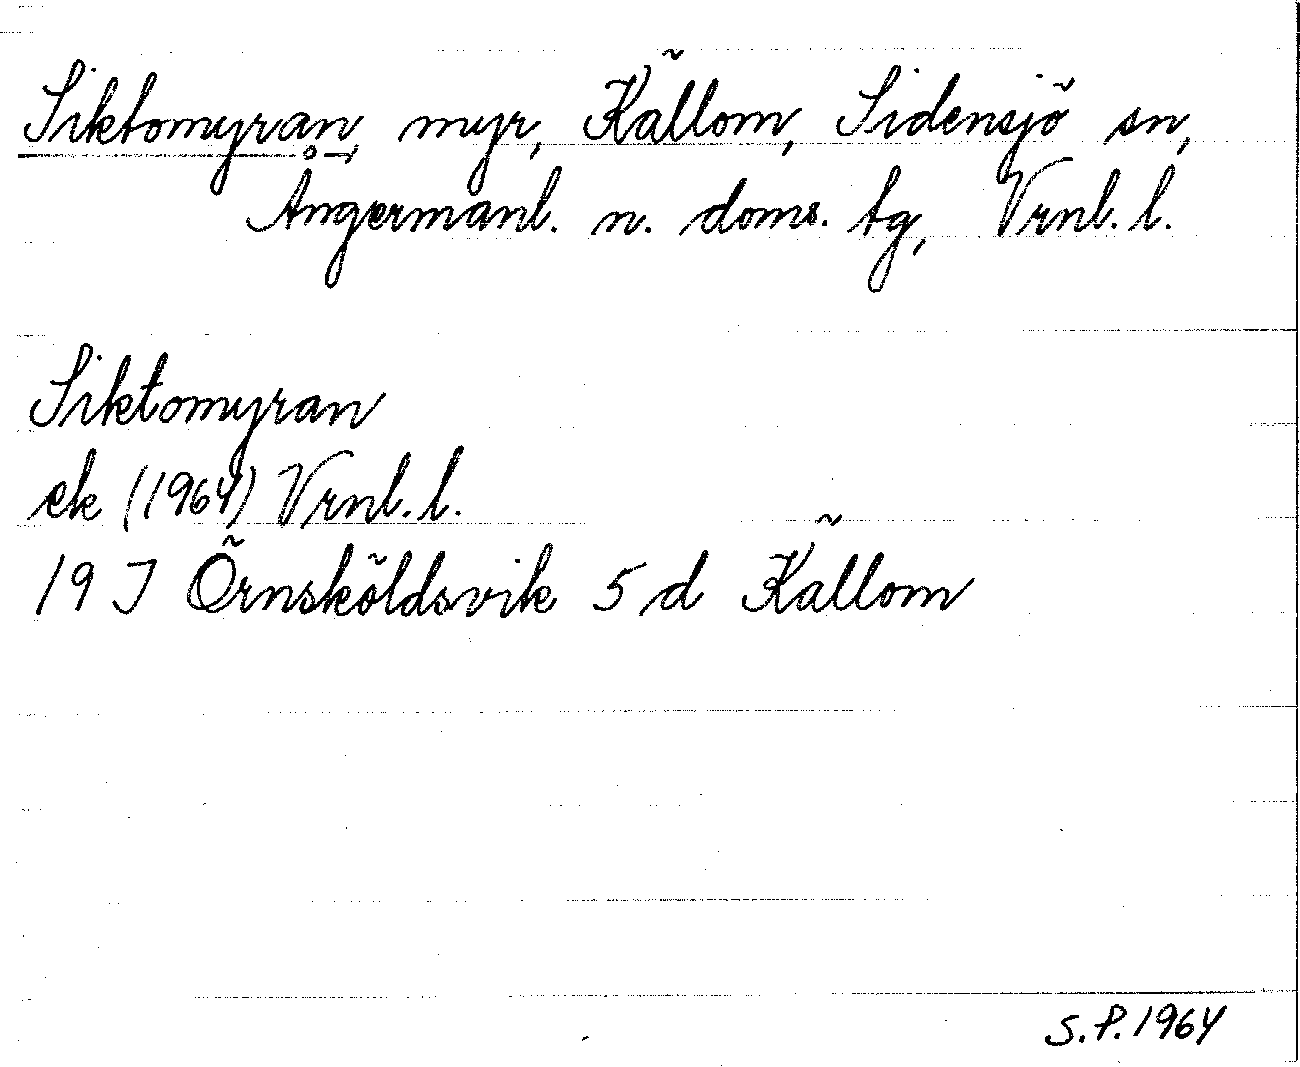 Siktomyran myr, Källom, Sidensjö sn,
Ångermanl. n. doms. tg, Vrnl. l.
Siktomyran
ek (1964) Vrnl. l.
19 J Örnsköldsvik 5 d Källom
S.P. 1964